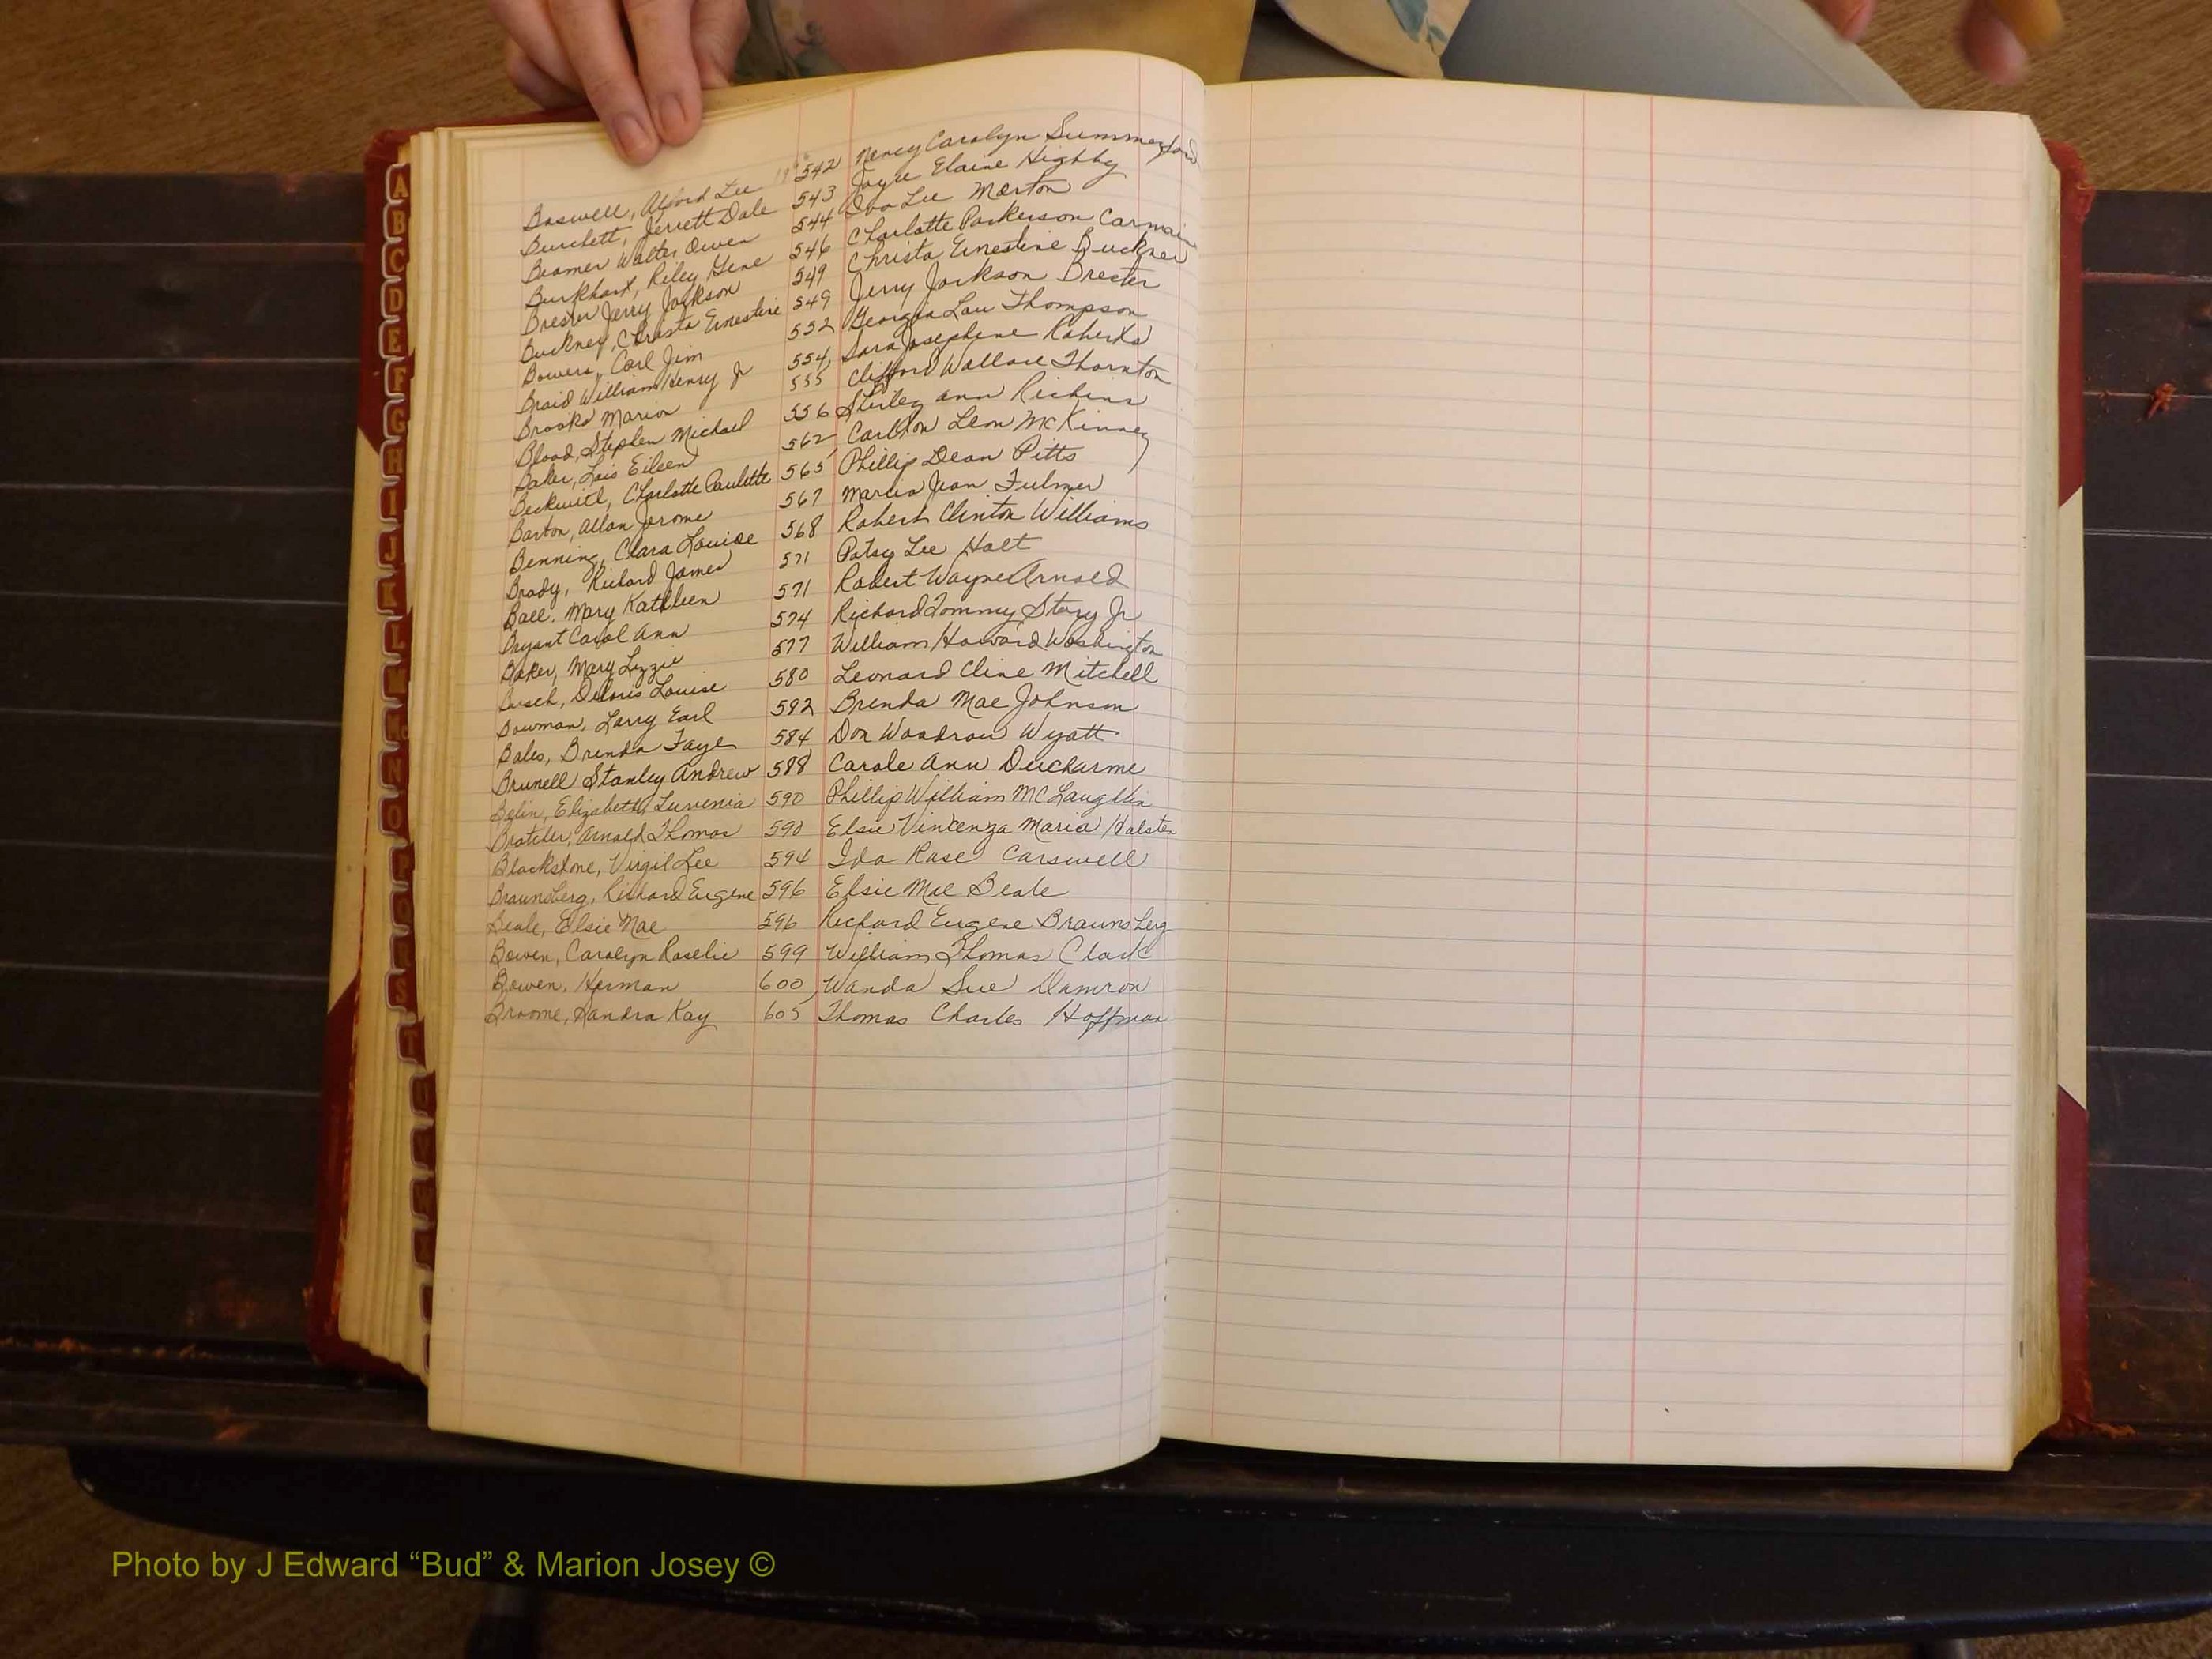 Boswell, Alford Lee 542 Nancy Carolyn Summerford
Burchett, Jerrett Dale 543 Joyce Elaine Highby
Beamer Walter Owen 544 Iva Lee Morton
Burkhart, Riley Gene 546 Charlotte Parkerson Carmain
Brester Jerry Jackson 549 Christa Ernestine Buckner
Buckner, Christa Ernestine 549 Jerry Jackson Brester
Bowers, Carl Jim 552 Georgia Lou Thompson
Braid William Henry Jr 554 Sara Josephine Roberts
Brooks Marion 555 Clifford Wallace Thornton
Blood, Stephen Michael 556 Shirley Ann Richins
Baker, Lois Eileen 562 Carlton Leon McKinney
Beckwith, Charlotte Paulette 565 Phillip Dean Pitts
Barton, Allan Jerome 567 Marcia Jean Fulmer
Benning, Clara Louise 568 Robert Clinton Williams
Brady, Richard James 571 Patsy Lee Holt
Ball, Mary Kathleen 571 Robert Wayne Arnold
Bryant Carol Ann 574 Richard Tommy Story Jr
Baker, Mary Lizzie 577 William Howard Washington
Busch, Deloris Louise 580 Leonard Cline Mitchell
Bowman, Larry Earl 582 Brenda Mae Johnson
Bales, Brenda Faye 584 Don Woodrow Wyatt
Brunell Stanley Andrew 588 Carole Ann Ducharme
Belin, Elizabeth Luvenia 590 Phillip William McLaughlin
Bratcher, Arnold Thomas 590 Elsie Vincenza Maria Halsten
Blackstone, Virgil Lee 594 Ida Rose Carswell
Braunsberg, Richard Eugene 596 Elsie Mae Beale
Beale, Elsie Mae 596 Richard Eugene Braunsberg
Bowen, Carolyn Roselie 599 William Thomas Clark
Bowen, Herman 600 Wanda Sue Damron
Broome, Sandra Kay 605 Thomas Charles Hoffman
A
B
C
D
E
F
G
H
I
J
K
L
M
Mc
N
O
P
Q
R
S
T
Photo by J Edward “Bud” & Marion Josey ©